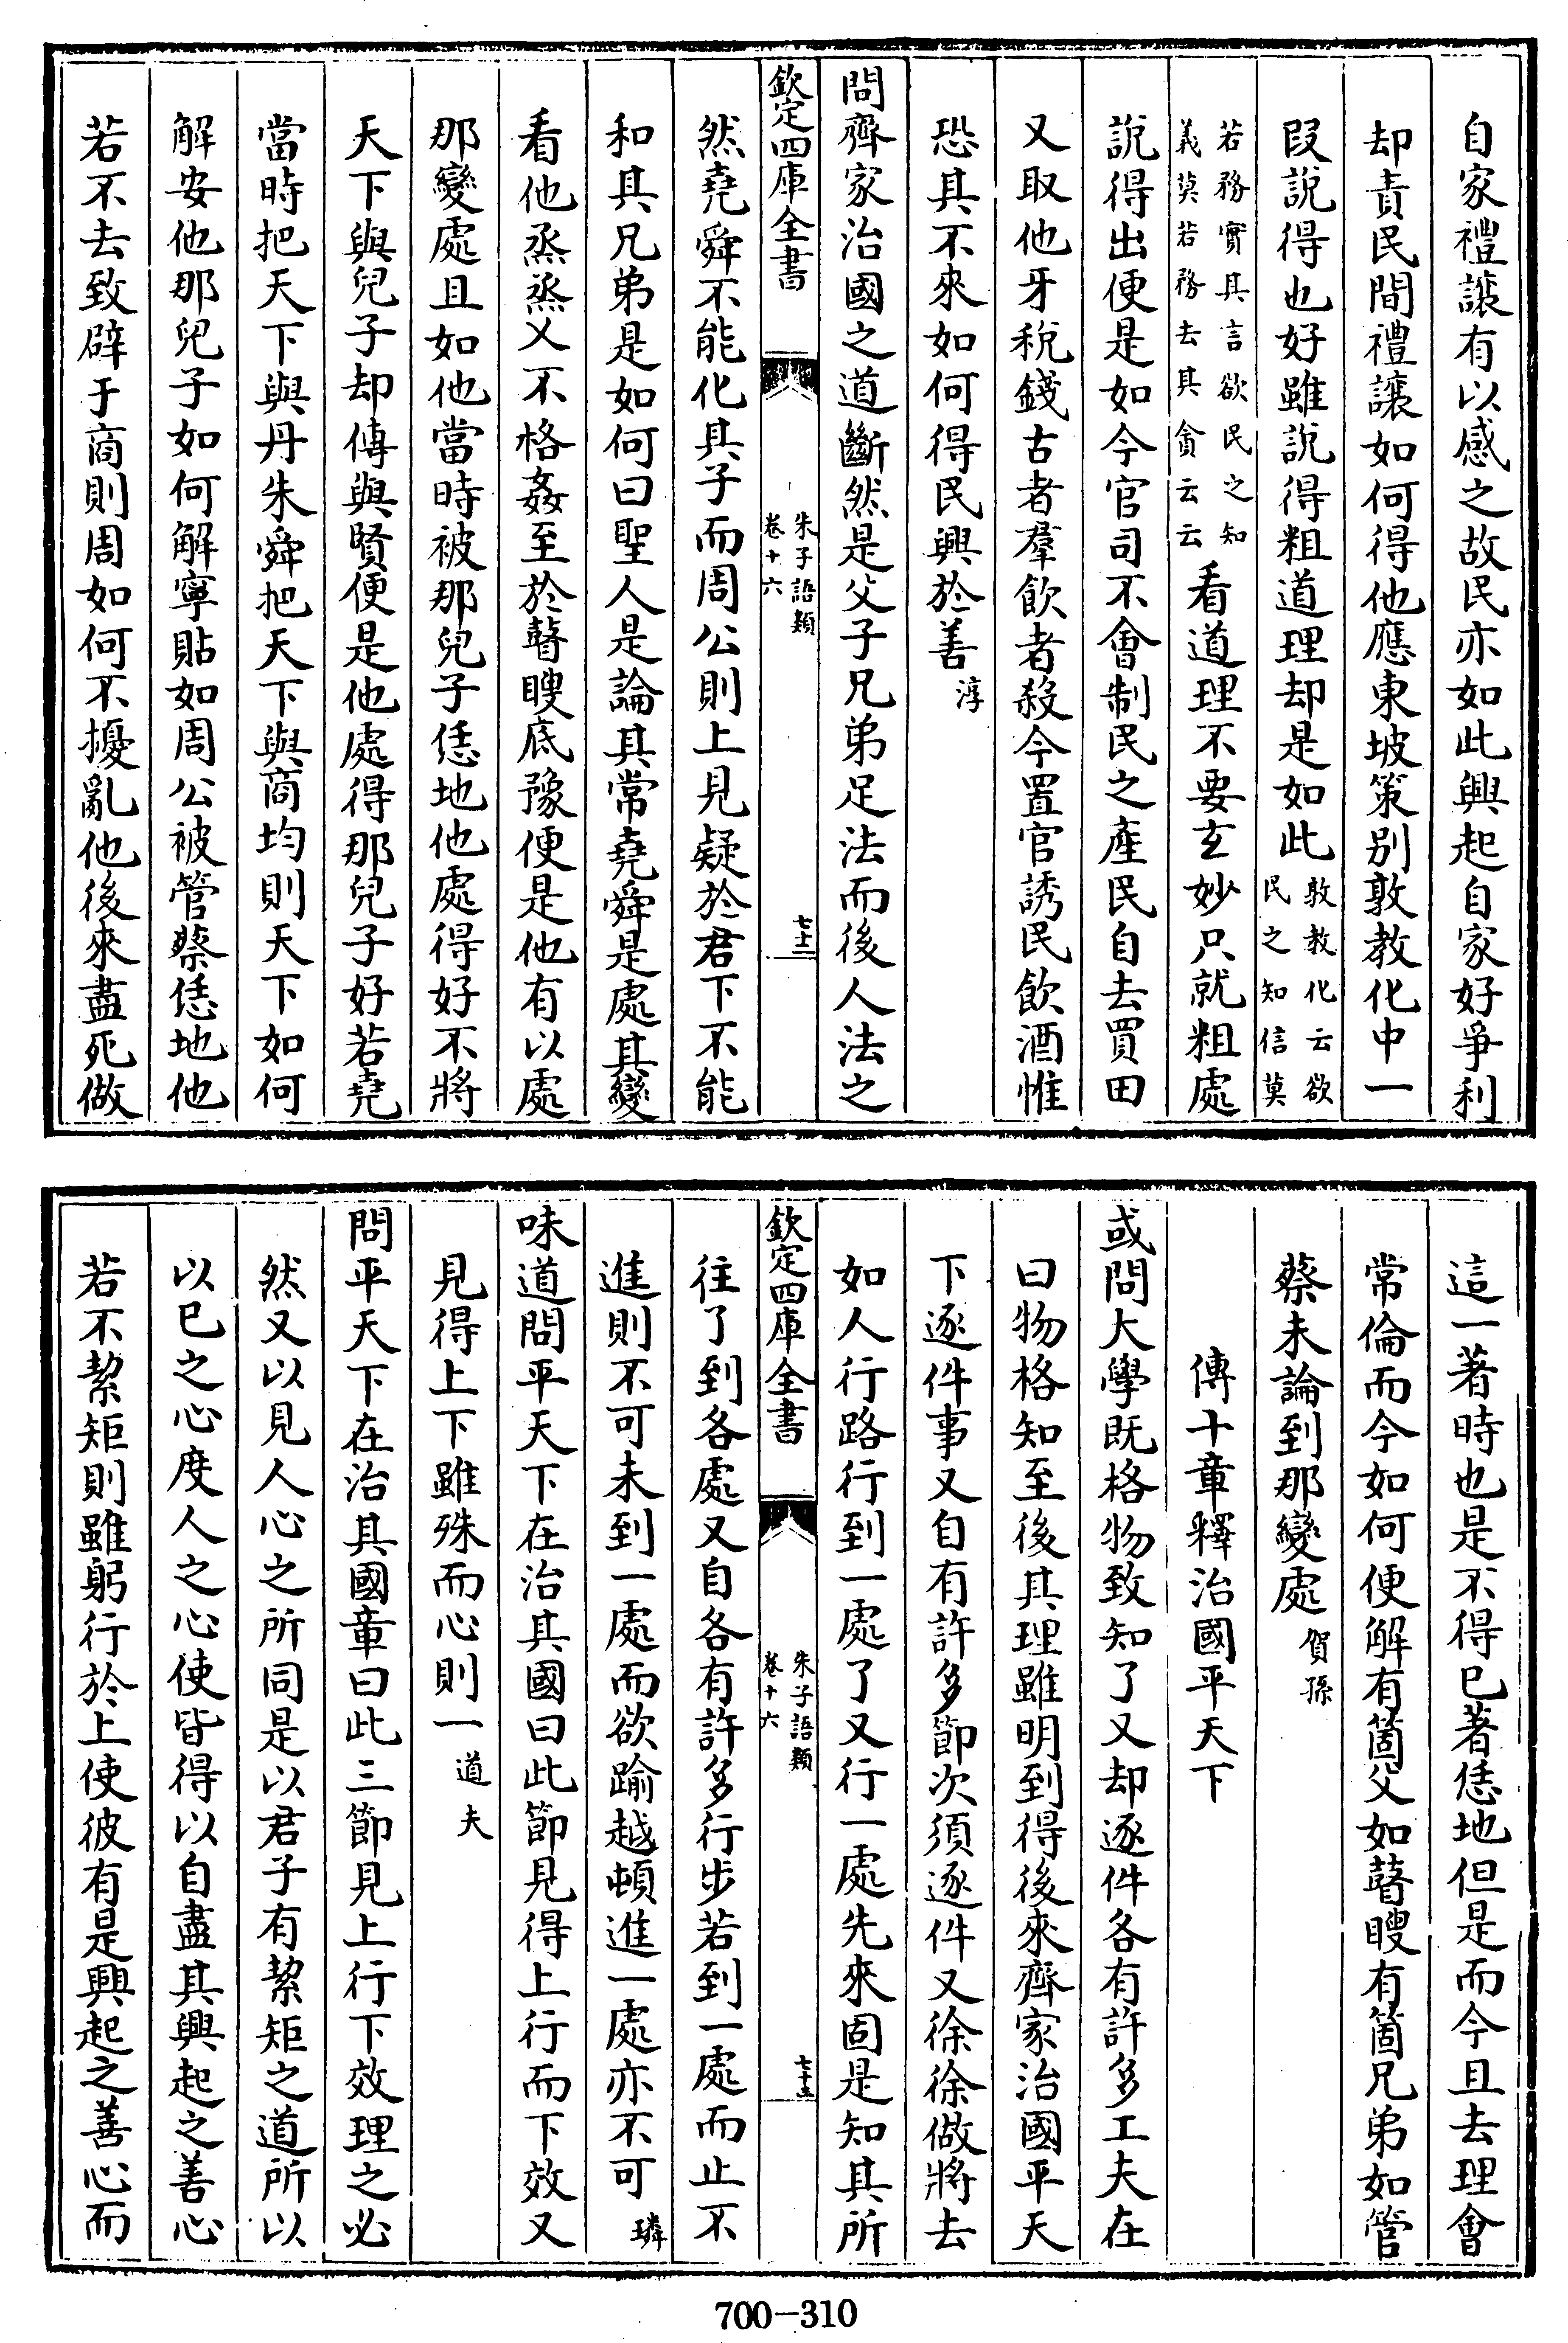 自家禮讓有以感之故民亦如此興起自家好爭利
却責民間禮讓如何得他應東坡策别敦教化中一
段說得也好雖說得粗道理却是如此敦教化云欲民之知信莫
若務實其言欲民之知義莫若務去其貪云云看道理不要玄妙只就粗處
說得出便是如今官司不會制民之產民自去買田
又取他牙稅錢古者羣飲者殺今置官誘民飲酒惟
恐其不來如何得民興於善淳
問齊家治國之道斷然是父子兄弟足法而後人法之
欽定四庫全書
朱子語類
卷十六
七十二
然堯舜不能化其子而周公則上見疑於君下不能
和其兄弟是如何曰聖人是論其常堯舜是處其變
看他烝烝乂不格姦至於瞽瞍底豫便是他有以處
那變處且如他當時被那兒子恁地他處得好不將
天下與兒子却傳與賢便是他處得那兒子好若堯
當時把天下與丹朱舜把天下與商均則天下如何
解安他那兒子如何解寧貼如周公被管蔡恁地他
若不去致辟于商則周如何不擾亂他後來盡死做
這一著時也是不得已著恁地但是而今且去理會
常倫而今如何便解有箇父如瞽瞍有箇兄弟如管
蔡未論到那變處賀孫
傳十章釋治國平天下
或問大學既格物致知了又却逐件各有許多工夫在
曰物格知至後其理雖明到得後來齊家治國平天
下逐件事又自有許多節次須逐件又徐徐做將去
如人行路行到一處了又行一處先來固是知其所
欽定四庫全書
朱子語類
卷十六
七十三
往了到各處又自各有許多行步若到一處而止不
進則不可未到一處而欲踰越頓進一處亦不可璘
味道問平天下在治其國曰此節見得上行而下效又
見得上下雖殊而心則一道夫
問平天下在治其國章曰此三節見上行下效理之必
然又以見人心之所同是以君子有絜矩之道所以
以己之心度人之心使皆得以自盡其興起之善心
若不絜矩則雖躬行於上使彼有是興起之善心而
700-310